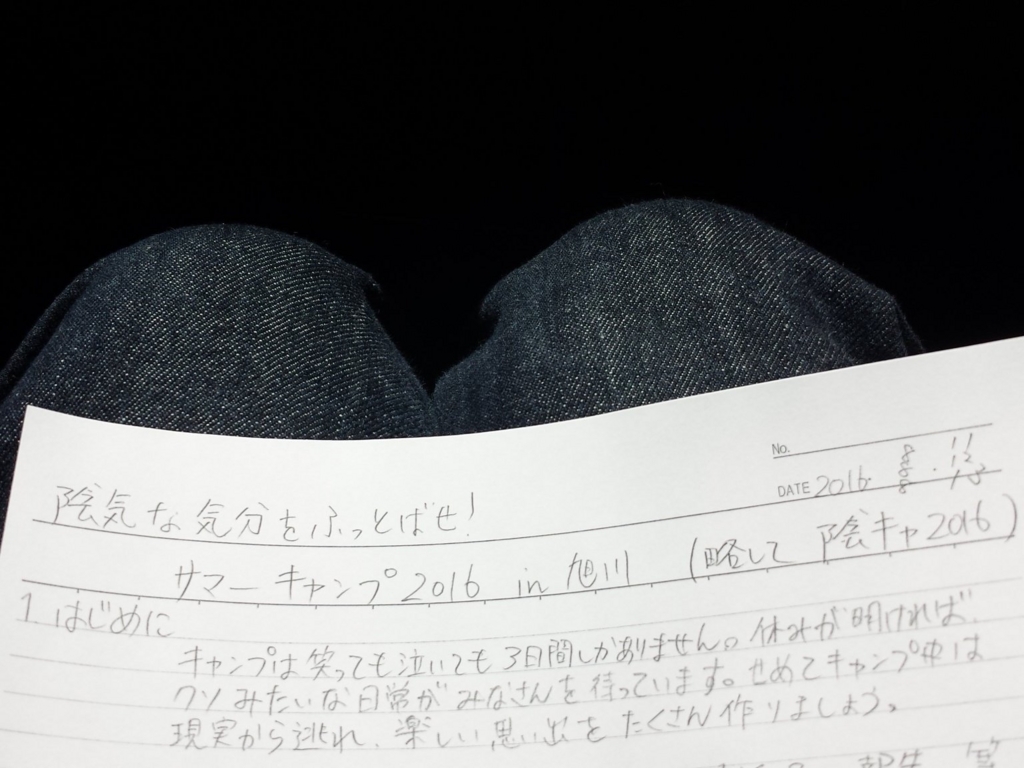 No.
DATE 2016 8 . 11
8 . 12
8 . 13
陰気な気分をふっとばせ!
サマーキャンプ2016 in 旭川 (略して 陰キャ2016)
1. はじめに
キャンプは笑っても泣いても3日間しかありません。休みが明ければ、
クソみたいな日常がみなさんを待っています。せめてキャンプ中は
現実から逃れ、楽しい思い出をたくさん作りましょう。